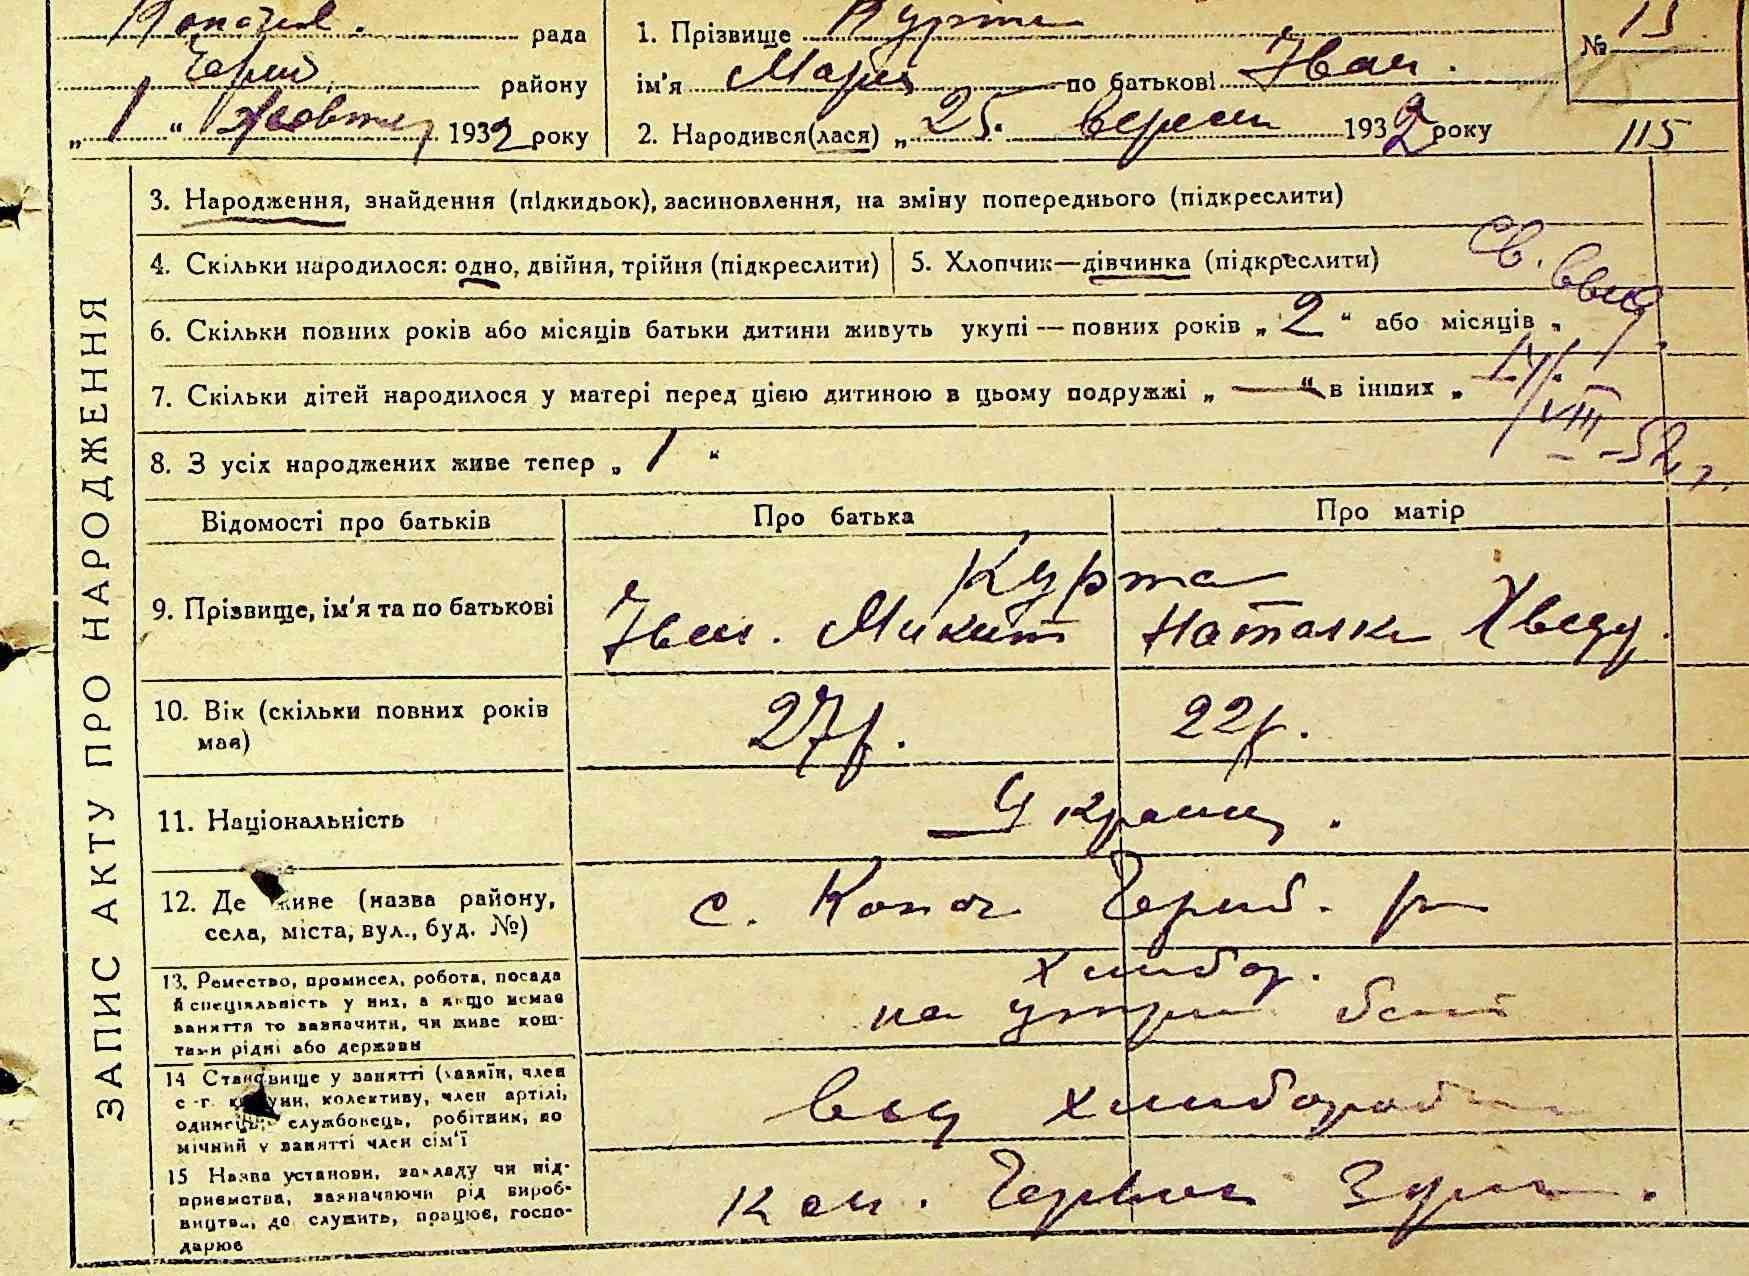 рада
району
„ 1 “ Жовтня 1932 року
1. Прізвище Курта
ім'я Марія по батькові Іван.
2. Народився(лася) „ 25 “ вересн 1932 року
№ 15
115
ЗАПИС АКТУ ПРО НАРОДЖЕННЯ
3. Народження, знайдення (підкидьок), засиновлення, на зміну попереднього (підкреслити)
4. Скільки народилося: одно, двійня, трійня (підкреслити)
5. Хлопчик—дівчинка (підкреслити)
Св.
6. Скільки повних років або місяців батьки дитини живуть укупі — повних років „ 2 “ або місяців „
7. Скільки дітей народилося у матері перед цією дитиною в цьому подружжі „ — “ в інших „
VIII
52 г.
8. З усіх народжених живе тепер „ 1 “
Відомості про батьків
Про батька
Про матір
9. Прізвище, ім'я та по батькові
Курта
Іван. Микит
Наталка Хведу.
10. Вік (скільки повних років
має)
27 р.
22 р.
11. Національність
Україн.
12. Де живе (назва району,
села, міста, вул., буд. №)
с. Копач Черноб. р-н
13. Ремество, промисел, робота, посада
й спеціяльність у них, а якщо немає
заняття то зазначити, чи живе кош-
тами рідні або держави
хлибор.
на утрим
14 Становище у занятті (хазяїн, член
с.-г. комуни, колективу, член артілі,
одинець, службовець, робітник, по
мічний у занятті член сім'ї
хлибороб
15 Назва установи, закладу чи під-
приємства, зазначаючи рід вироб-
ництва, де служить, працює, госпо-
дарює
кол. Червон Зірк.